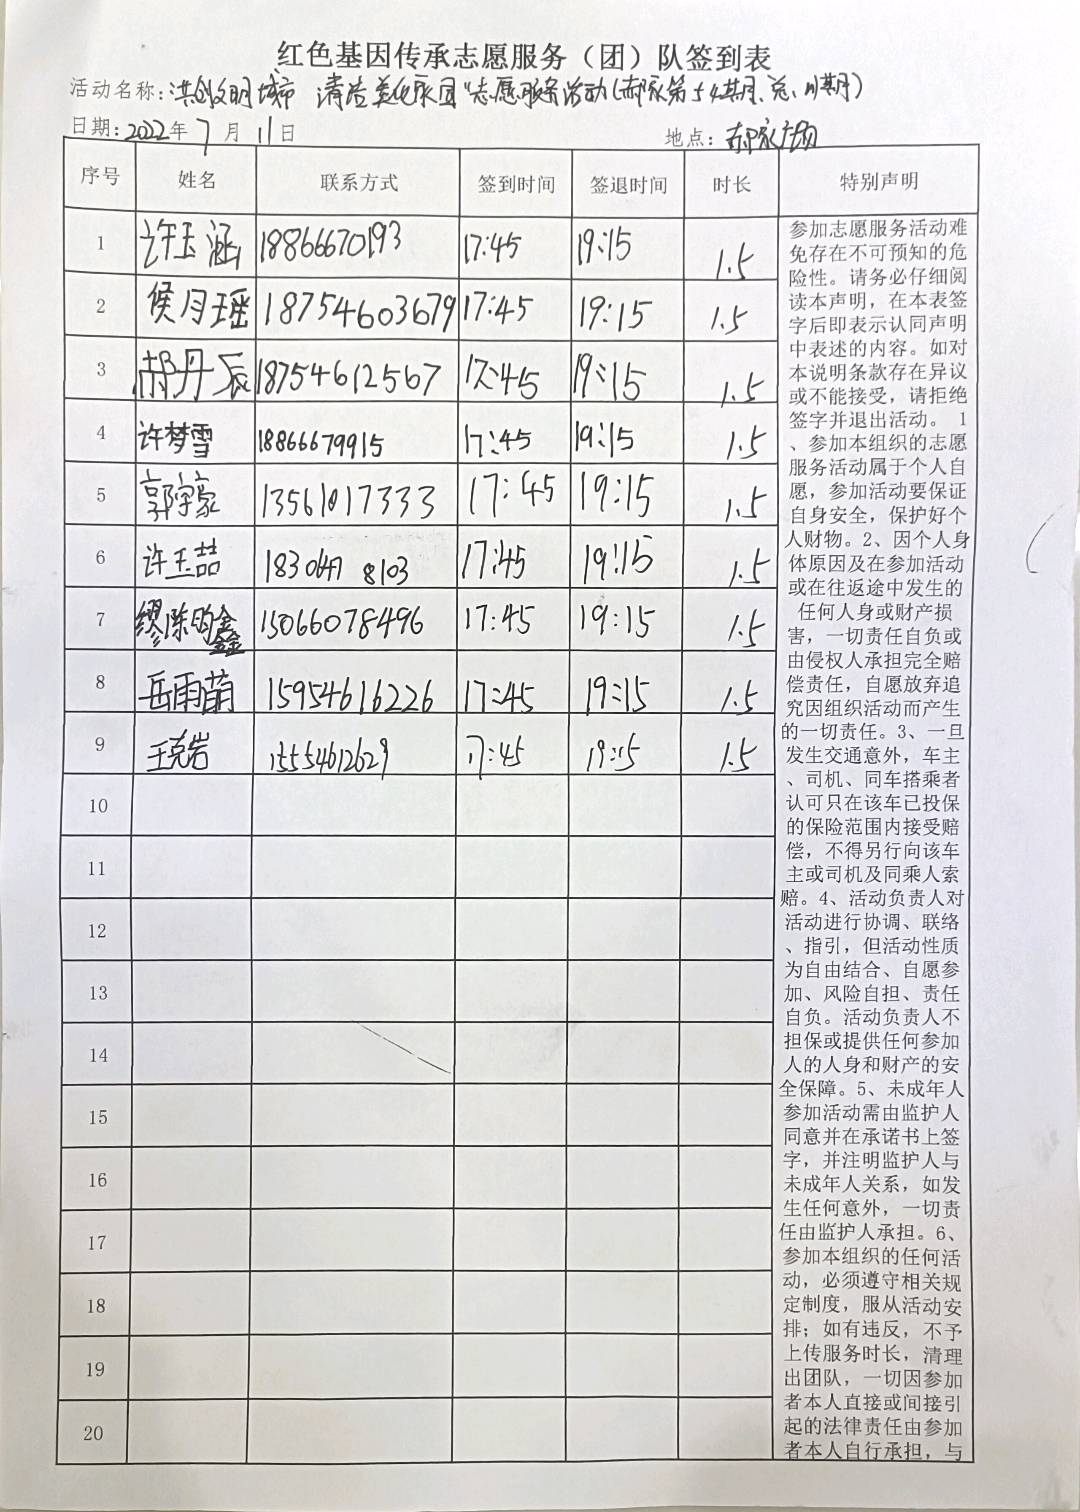 红色基因传承志愿服务（团）队签到表
活动名称：洪创文明城市 清洁美化家园"志愿服务活动(郝家第54期、总、川期)
日期：2022年7月11日 地点：郝家广场
序号 姓名 联系方式 签到时间 签退时间 时长 特别声明
1 许玉涵 18866670193 17:45 19:15 1.5
2 侯月瑶 18754603679 17:45 19:15 1.5
3 郝丹辰 18754612567 17:45 19:15 1.5
4 许梦雪 18866679915 17:45 19:15 1.5
5 郭宇豪 13561017333 17:45 19:15 1.5
6 许玉喆 18304 8103 17:45 19:15 1.5
7 缪陈昀鑫 15066078496 17:45 19:15 1.5
8 岳雨萌 15954616226 17:45 19:15 1.5
9 王克岩 15554612629 17:45 19:15 1.5
10
11
12
13
14
15
16
17
18
19
20
参加志愿服务活动难
免存在不可预知的危
险性。请务必仔细阅
读本声明，在本表签
字后即表示认同声明
中表述的内容。如对
本说明条款存在异议
或不能接受，请拒绝
签字并退出活动。 1
、参加本组织的志愿
服务活动属于个人自
愿，参加活动要保证
自身安全，保护好个
人财物。2、因个人身
体原因及在参加活动
或在往返途中发生的
任何人身或财产损
害，一切责任自负或
由侵权人承担完全赔
偿责任，自愿放弃追
究因组织活动而产生
的一切责任。3、一旦
发生交通意外，车主
、司机、同车搭乘者
认可只在该车已投保
的保险范围内接受赔
偿，不得另行向该车
主或司机及同乘人索
赔。4、活动负责人对
活动进行协调、联络
、指引，但活动性质
为自由结合、自愿参
加、风险自担、责任
自负。活动负责人不
担保或提供任何参加
人的人身和财产的安
全保障。5、未成年人
参加活动需由监护人
同意并在承诺书上签
字，并注明监护人与
未成年人关系，如发
生任何意外，一切责
任由监护人承担。6、
参加本组织的任何活
动，必须遵守相关规
定制度，服从活动安
排；如有违反，不予
上传服务时长，清理
出团队，一切因参加
者本人直接或间接引
起的法律责任由参加
者本人自行承担，与